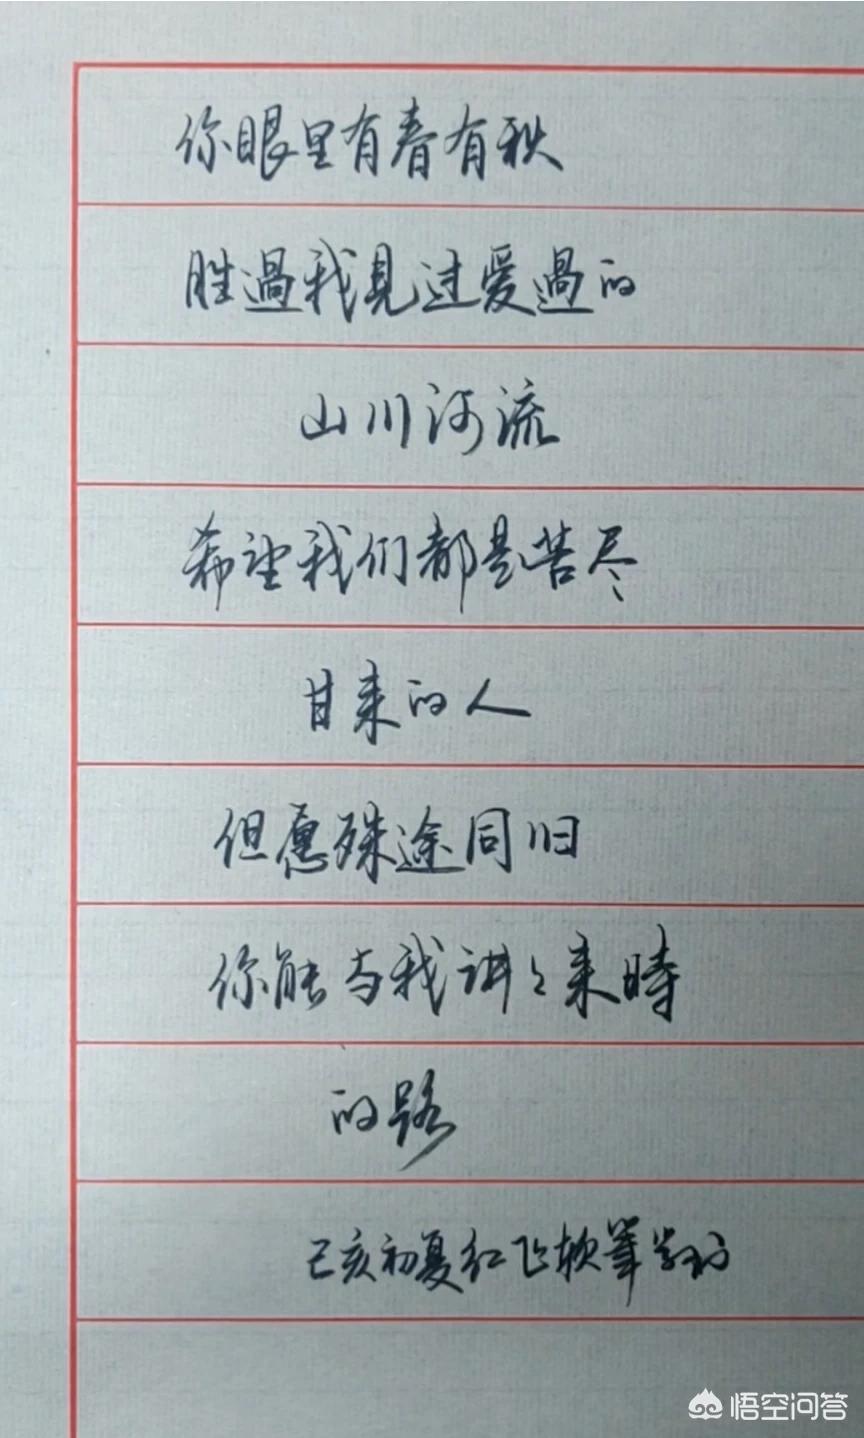 你眼里有春有秋
胜過我見过爱過的
山川河流
希望我们都是苦尽
甘来的人
但愿殊途同归
你能与我讲々来時
的路
己亥初夏红飞软笔
悟空问答